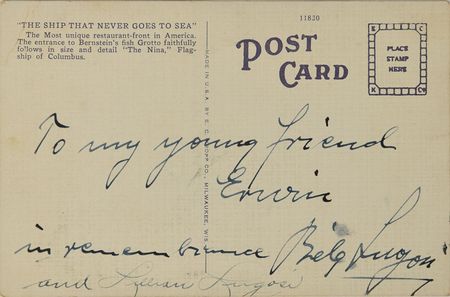 "THE SHIP THAT NEVER GOES TO SEA"
The Most unique restaurant-front in America.
The entrance to Bernstein's fish Grotto faithfully
follows in size and detail "The Nina," Flag-
ship of Columbus.
11830
POST
CARD
PLACE
STAMP
HERE
E C
K Co
MADE IN U.S.A. BY E. C. KROPP CO., MILWAUKEE, WIS.
To my young friend
Erwin
in remembrance Bela Lugosi
and Lillian Lugosi